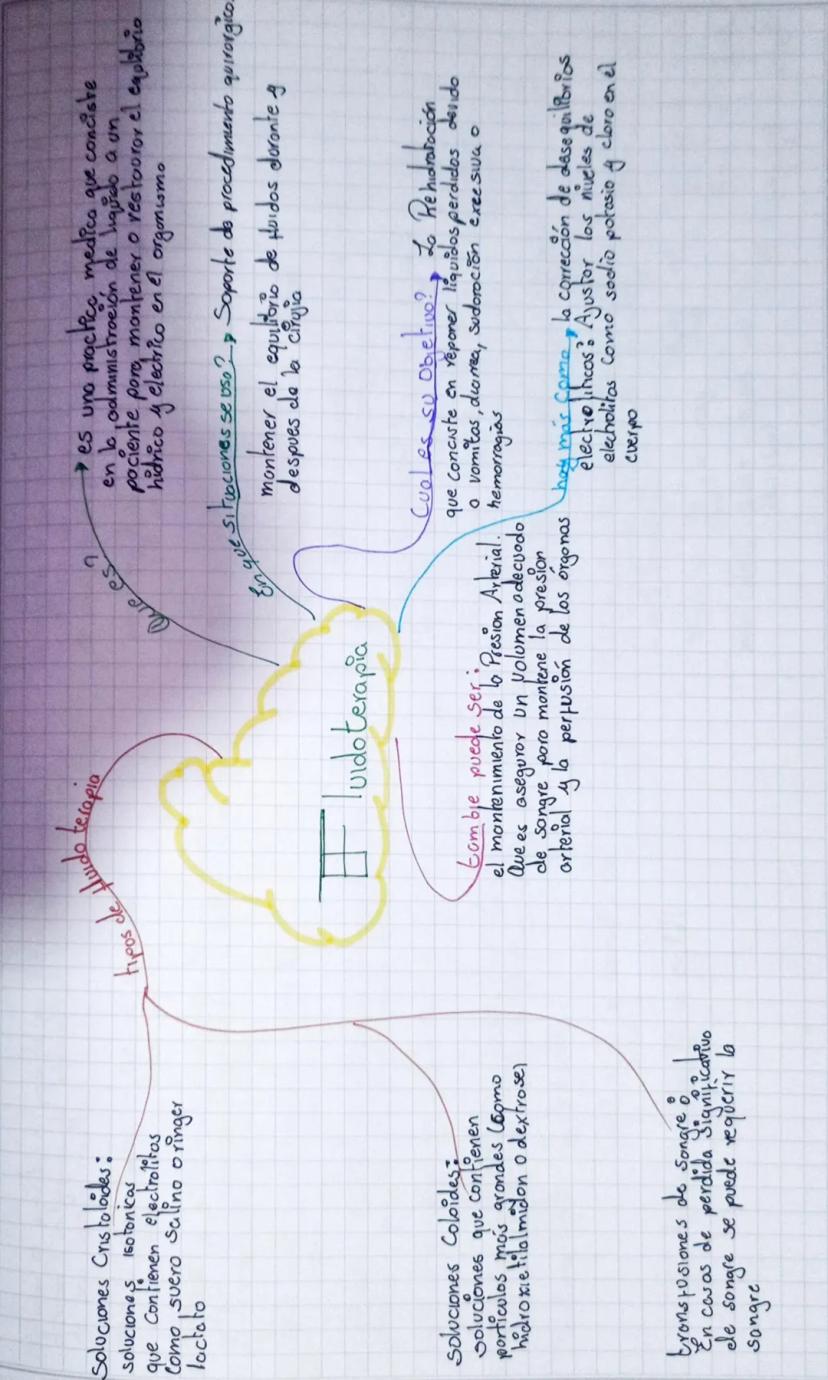 Fluidoterapia
Que es?
es una practica medica que conciste
en la administración de liquido a un
paciente para mantener o restaurar el equilibrio
hidrico y electrico en el organismo
En que situaciones se usa?
Soporte do procedimiento quirorgico.
mantener el equilibrio de fluidos durante y
despues de la cirujia
Cual es su Objetivo?
La Rehidratación
que conciste en reponer liquidos perdidos devido
a vomitos, diarrea, sudoración excesiva o
hemorragias
hay más como
la corrección de desequilibrios
electrolíticos: Ajustar los niveles de
electrolitas como sodio potasio y cloro en el
cuerpo
tambie puede ser:
el mantenimiento de la Presion Arterial.
Que es asegurar un volumen adecuado
de sangre para mantene la presion
arterial y la perfusión de los órganos
tipos de fluido terapia
Soluciones Cristaloides:
soluciones isotonicas
que contienen electrolitos
como suero salino o ringer
lactato
Soluciones Coloides:
soluciones que contienen
particulas más grandes (como
hidroxietilalmidon o dextrose)
transfusiones de sangre:
En casos de perdida significativo
de sangre se puede requerir la
sangre